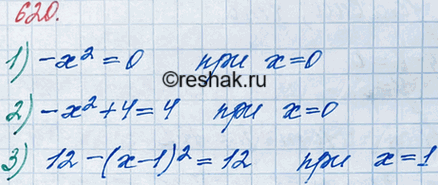 620.
1) -x² = 0 при x=0
©reshak.ru
2) -x²+4=4 при x=0
3) 12-(x-1)²=12 при x=1